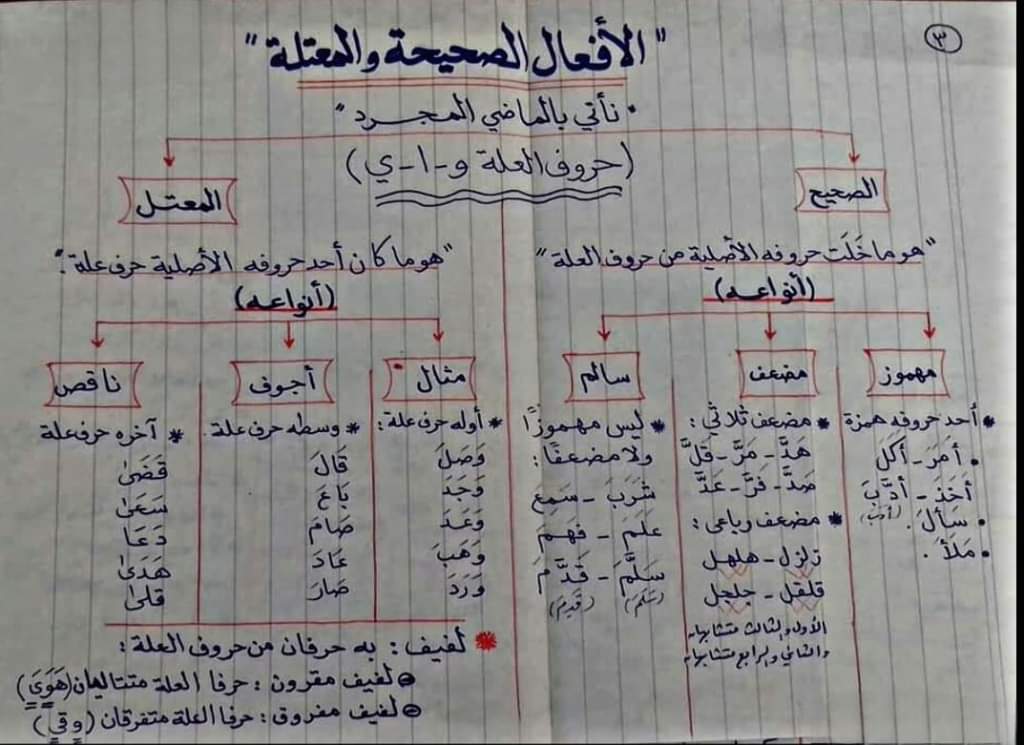 ٣
"الأفعال الصحيحة والمعتلة"
• نأتي بالماضي المجرد "
(حروف العلة و-ا-ي)
الصحيح
"هو ما خَلَت حروفه الأصلية من حروف العلة"
(أنواعه)
مهموز
* أحد حروفه همزة
• أمَرَ - أكَلَ
أخَذَ - أدَّبَ
(أدب)
• سَألَ.
• مَلَأَ.
مضعف
* مضعف ثلاثي:
هَدَّ - مَرَّ - قَلَّ
صَدَّ - فَرَّ - عَدَّ
* مضعف رباعي:
زلزل - هلهل
قلقل - جلجل
الأول والثالث متشابهان
والثاني والرابع متشابهان
سالم
* ليس مهموزًا
ولا مضعفًا:
شَرَبَ - سَمِعَ
علَمَ - فهَمَ
سَلَّمَ - قَدَّمَ
(سَلَمَ) (قَدِمَ)
المعتل
"هو ما كان أحد حروفه الأصلية حرف علة":
(أنواعه)
مثال
* أوله حرف علة:
وَصَلَ
وَجَدَ
وَعَدَ
وَهَبَ
وَرَدَ
أجوف
* وسطه حرف علة.
قَالَ
بَاعَ
صَامَ
عَادَ
صَارَ
ناقص
* آخره حرف علة
قَضَىٰ
سَعَىٰ
دَعَا
هَدَىٰ
قلىٰ
* لفيف: به حرفان من حروف العلة:
لفيف مقرون: حرفا العلة متتاليان (هَوَيَ)
لفيف مفروق: حرفا العلة متفرقان (وقي)